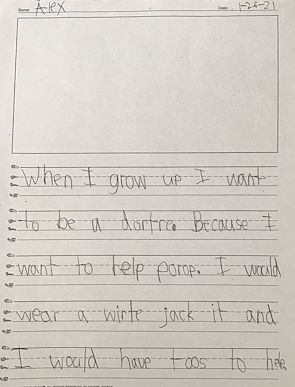 Name: Alex Date: 1-26-21
When I grow up I want
to be a dortre. Because I
want to help porop. I would
wear a wirte jack it and
I would have toos to help